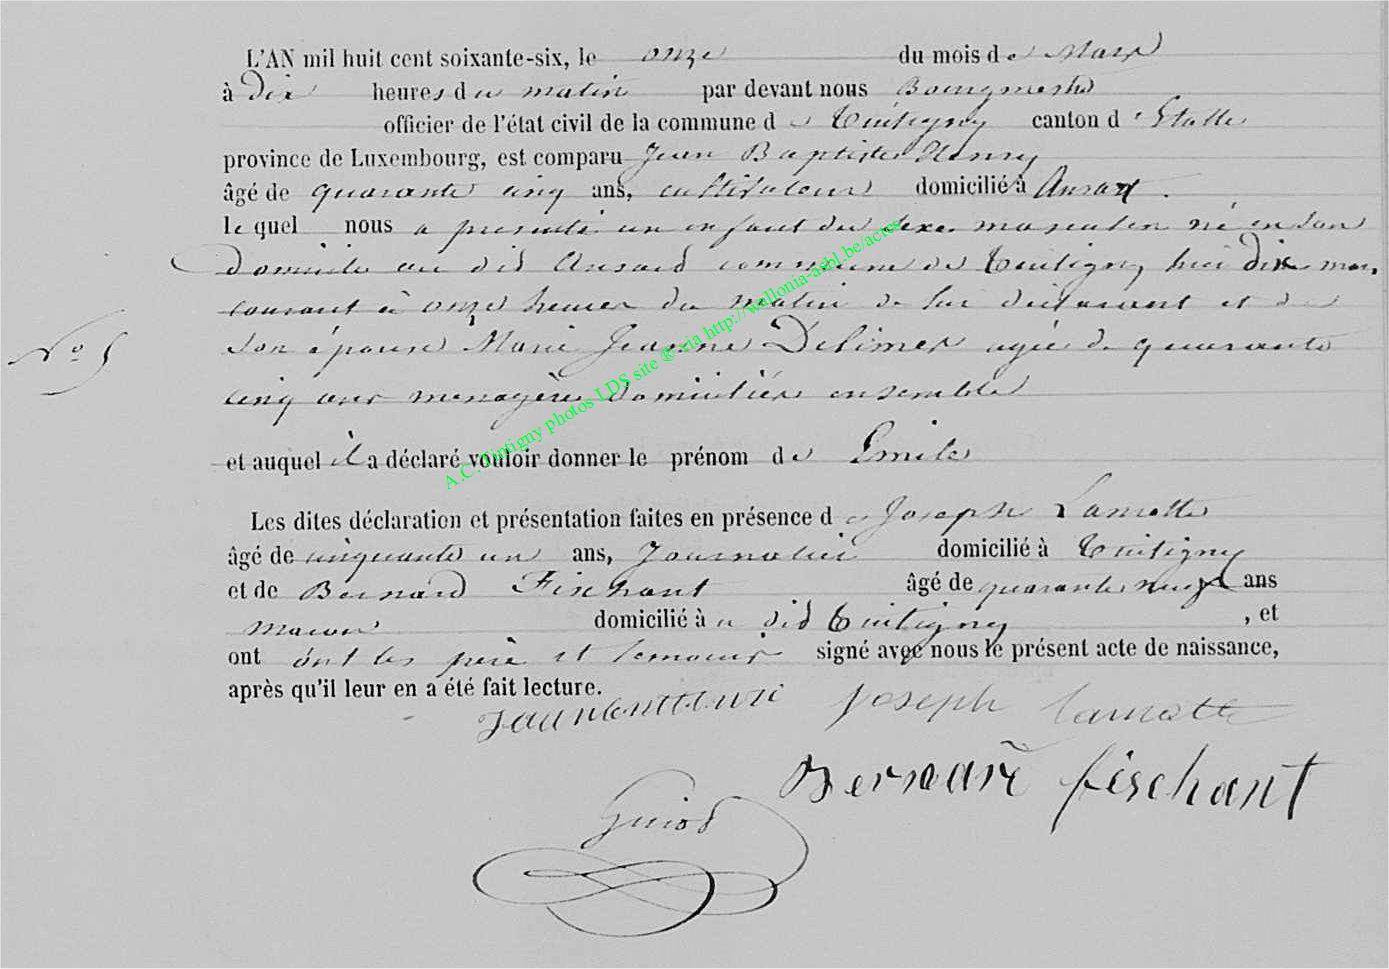 L'AN mil huit cent soixante-six, le onze du mois de Mars
à dix heures du matin par devant nous Bourgmestre
officier de l'état civil de la commune de Tintigny canton d'Etalle
province de Luxembourg, est comparu Jean Baptiste Henry
âgé de quarante cinq ans, cultivateur domicilié à Ansart.
le quel nous a présenté un enfant du sexe masculin né en son
domicile au dit Ansard commune de Tintigny hier dix mars
courant à onze heures du matin de lui déclarant et de
Son épouse Marie Jeanne agée de quarante
N° 5
cinq ans menagère domiciliés ensemble
et auquel il a déclaré vouloir donner le prénom de Emile
Les dites déclaration et présentation faites en présence de Joseph Lamotte
âgé de cinquante un ans, Journalier domicilié à Tintigny
et de Bernard Fischant âgé de quarante neuf ans
Macon domicilié à u dit Tintigny, et
ont ont les père et temoins signé avec nous le présent acte de naissance,
après qu'il leur en a été fait lecture.
Joseph Lamotte
Bernard fischant
Guiot
A.C. Tintigny photos LDS site ® via http://wallonia-asbl.be/actes